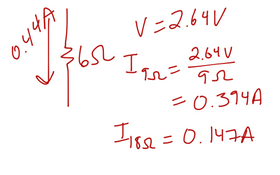 0.44A
6Ω
V = 2.64V
I9Ω = 2.64V / 9Ω
= 0.394A
I18Ω = 0.147A